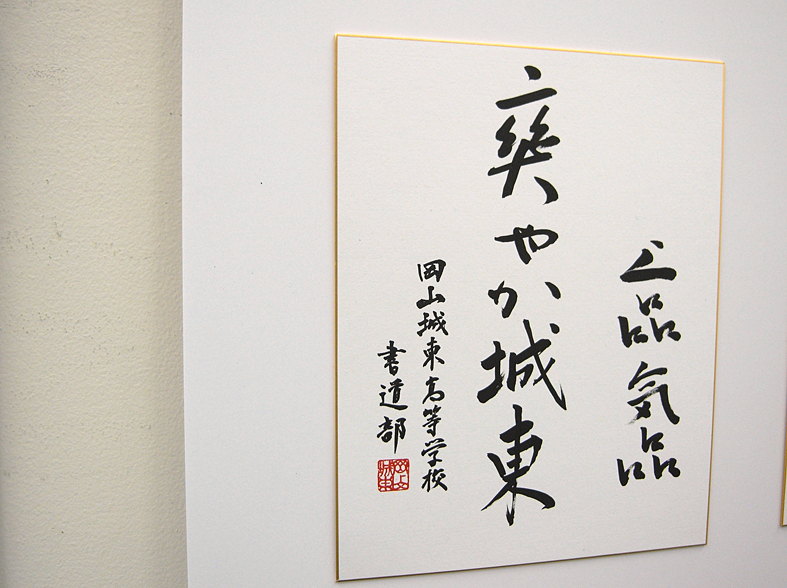 上品気品
爽やか城東
岡山城東高等学校
書道部